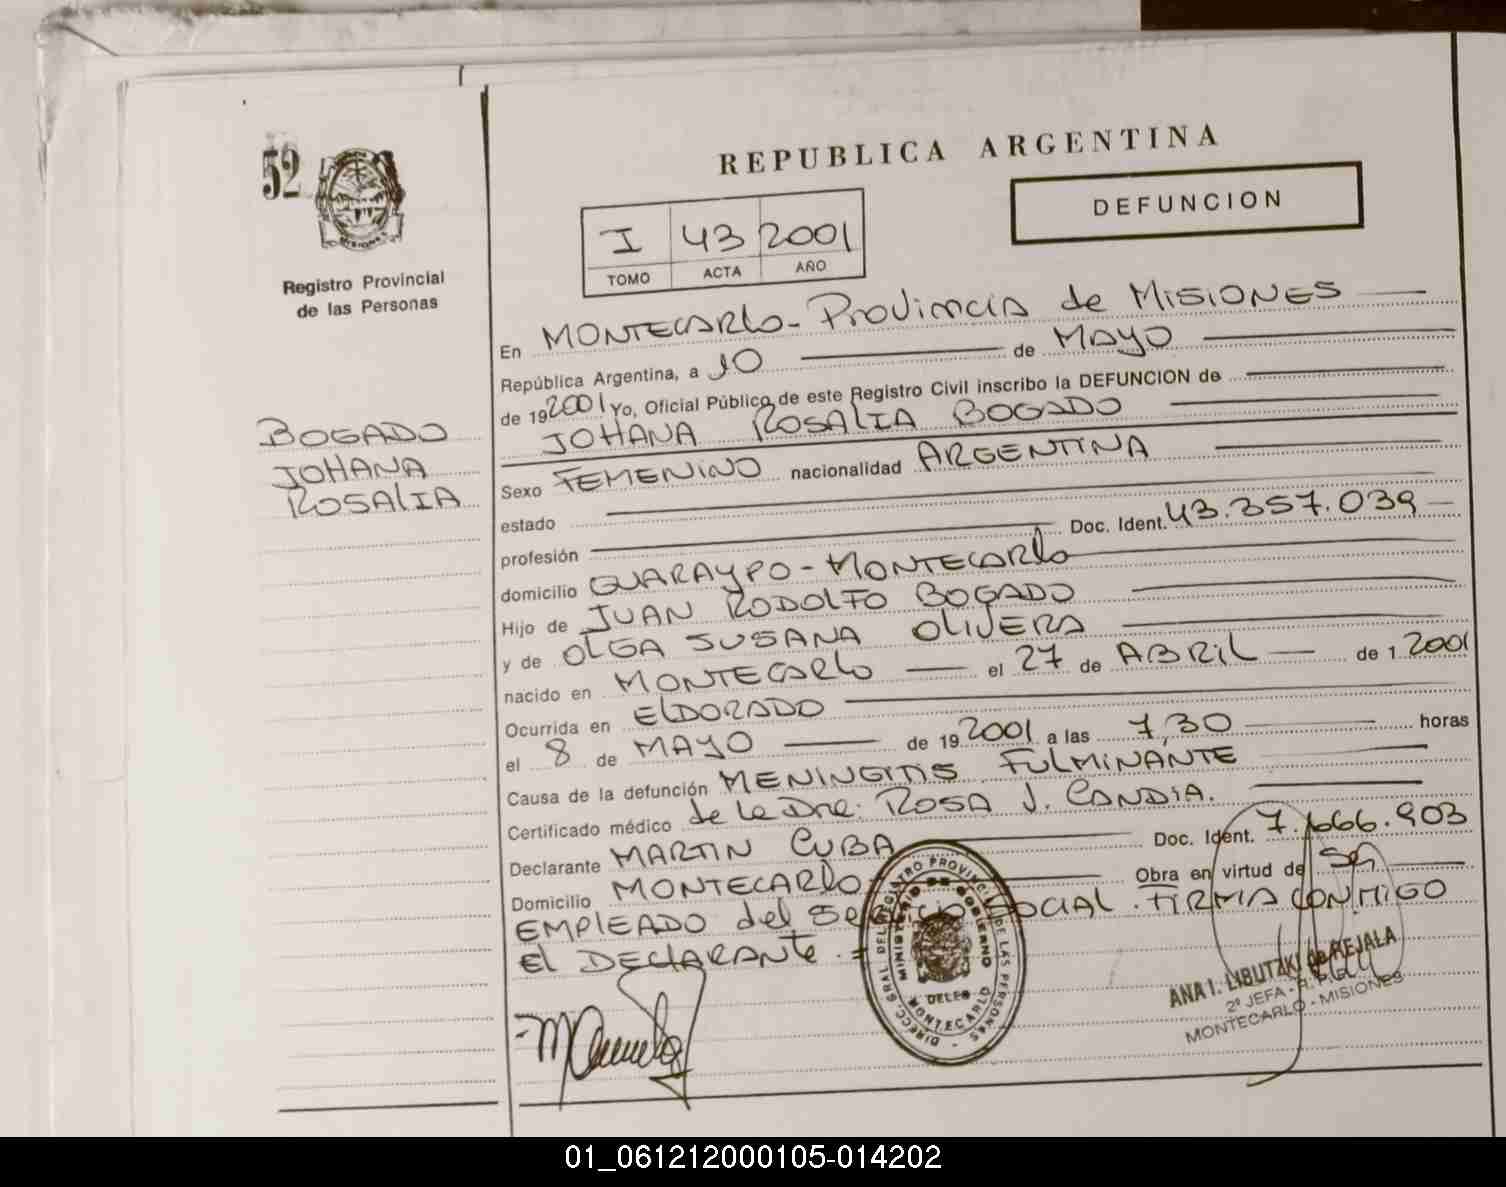 52
MISIONES
Registro Provincial
de las Personas
BOGADO
JOHANA
ROSALIA
REPUBLICA ARGENTINA
I 43 2001
TOMO ACTA AÑO
DEFUNCION
En MONTECARLO - PROVINCIA de MISIONES
República Argentina, a 10 de MAYO
de 19 2001 Yo, Oficial Público de este Registro Civil inscribo la DEFUNCION de
JOHANA ROSALIA BOGADO
Sexo FEMENINO nacionalidad ARGENTINA
estado
profesión Doc. Ident. 43.357.039
domicilio GUARAYPO - MONTECARLO
Hijo de JUAN RODOLFO BOGADO
y de OLGA SUSANA OLIVERA
nacido en MONTECARLO el 27 de ABRIL de 1 2001
Ocurrida en ELDORADO
el 8 de MAYO de 19 2001 a las 7,30 horas
Causa de la defunción MENINGITIS FULMINANTE
Certificado médico de la Dra. ROSA J. CANDIA.
Declarante MARTIN CUBA Doc. Ident. 7.666.903
Domicilio MONTECARLO Obra en virtud de Ser
EMPLEADO del SERVICIO SOCIAL. FIRMA CONMIGO
El DECLARANTE.=
DIRECC. GRAL. DEL REGISTRO PROVINCIAL DE LAS PERSONAS
MINISTERIO DE GOBIERNO
DELEG
MONTECARLO
ANA I. LIBUTZKI de REJALA
2ª JEFA - R. P.
MONTECARLO - MISIONES
01_061212000105-014202